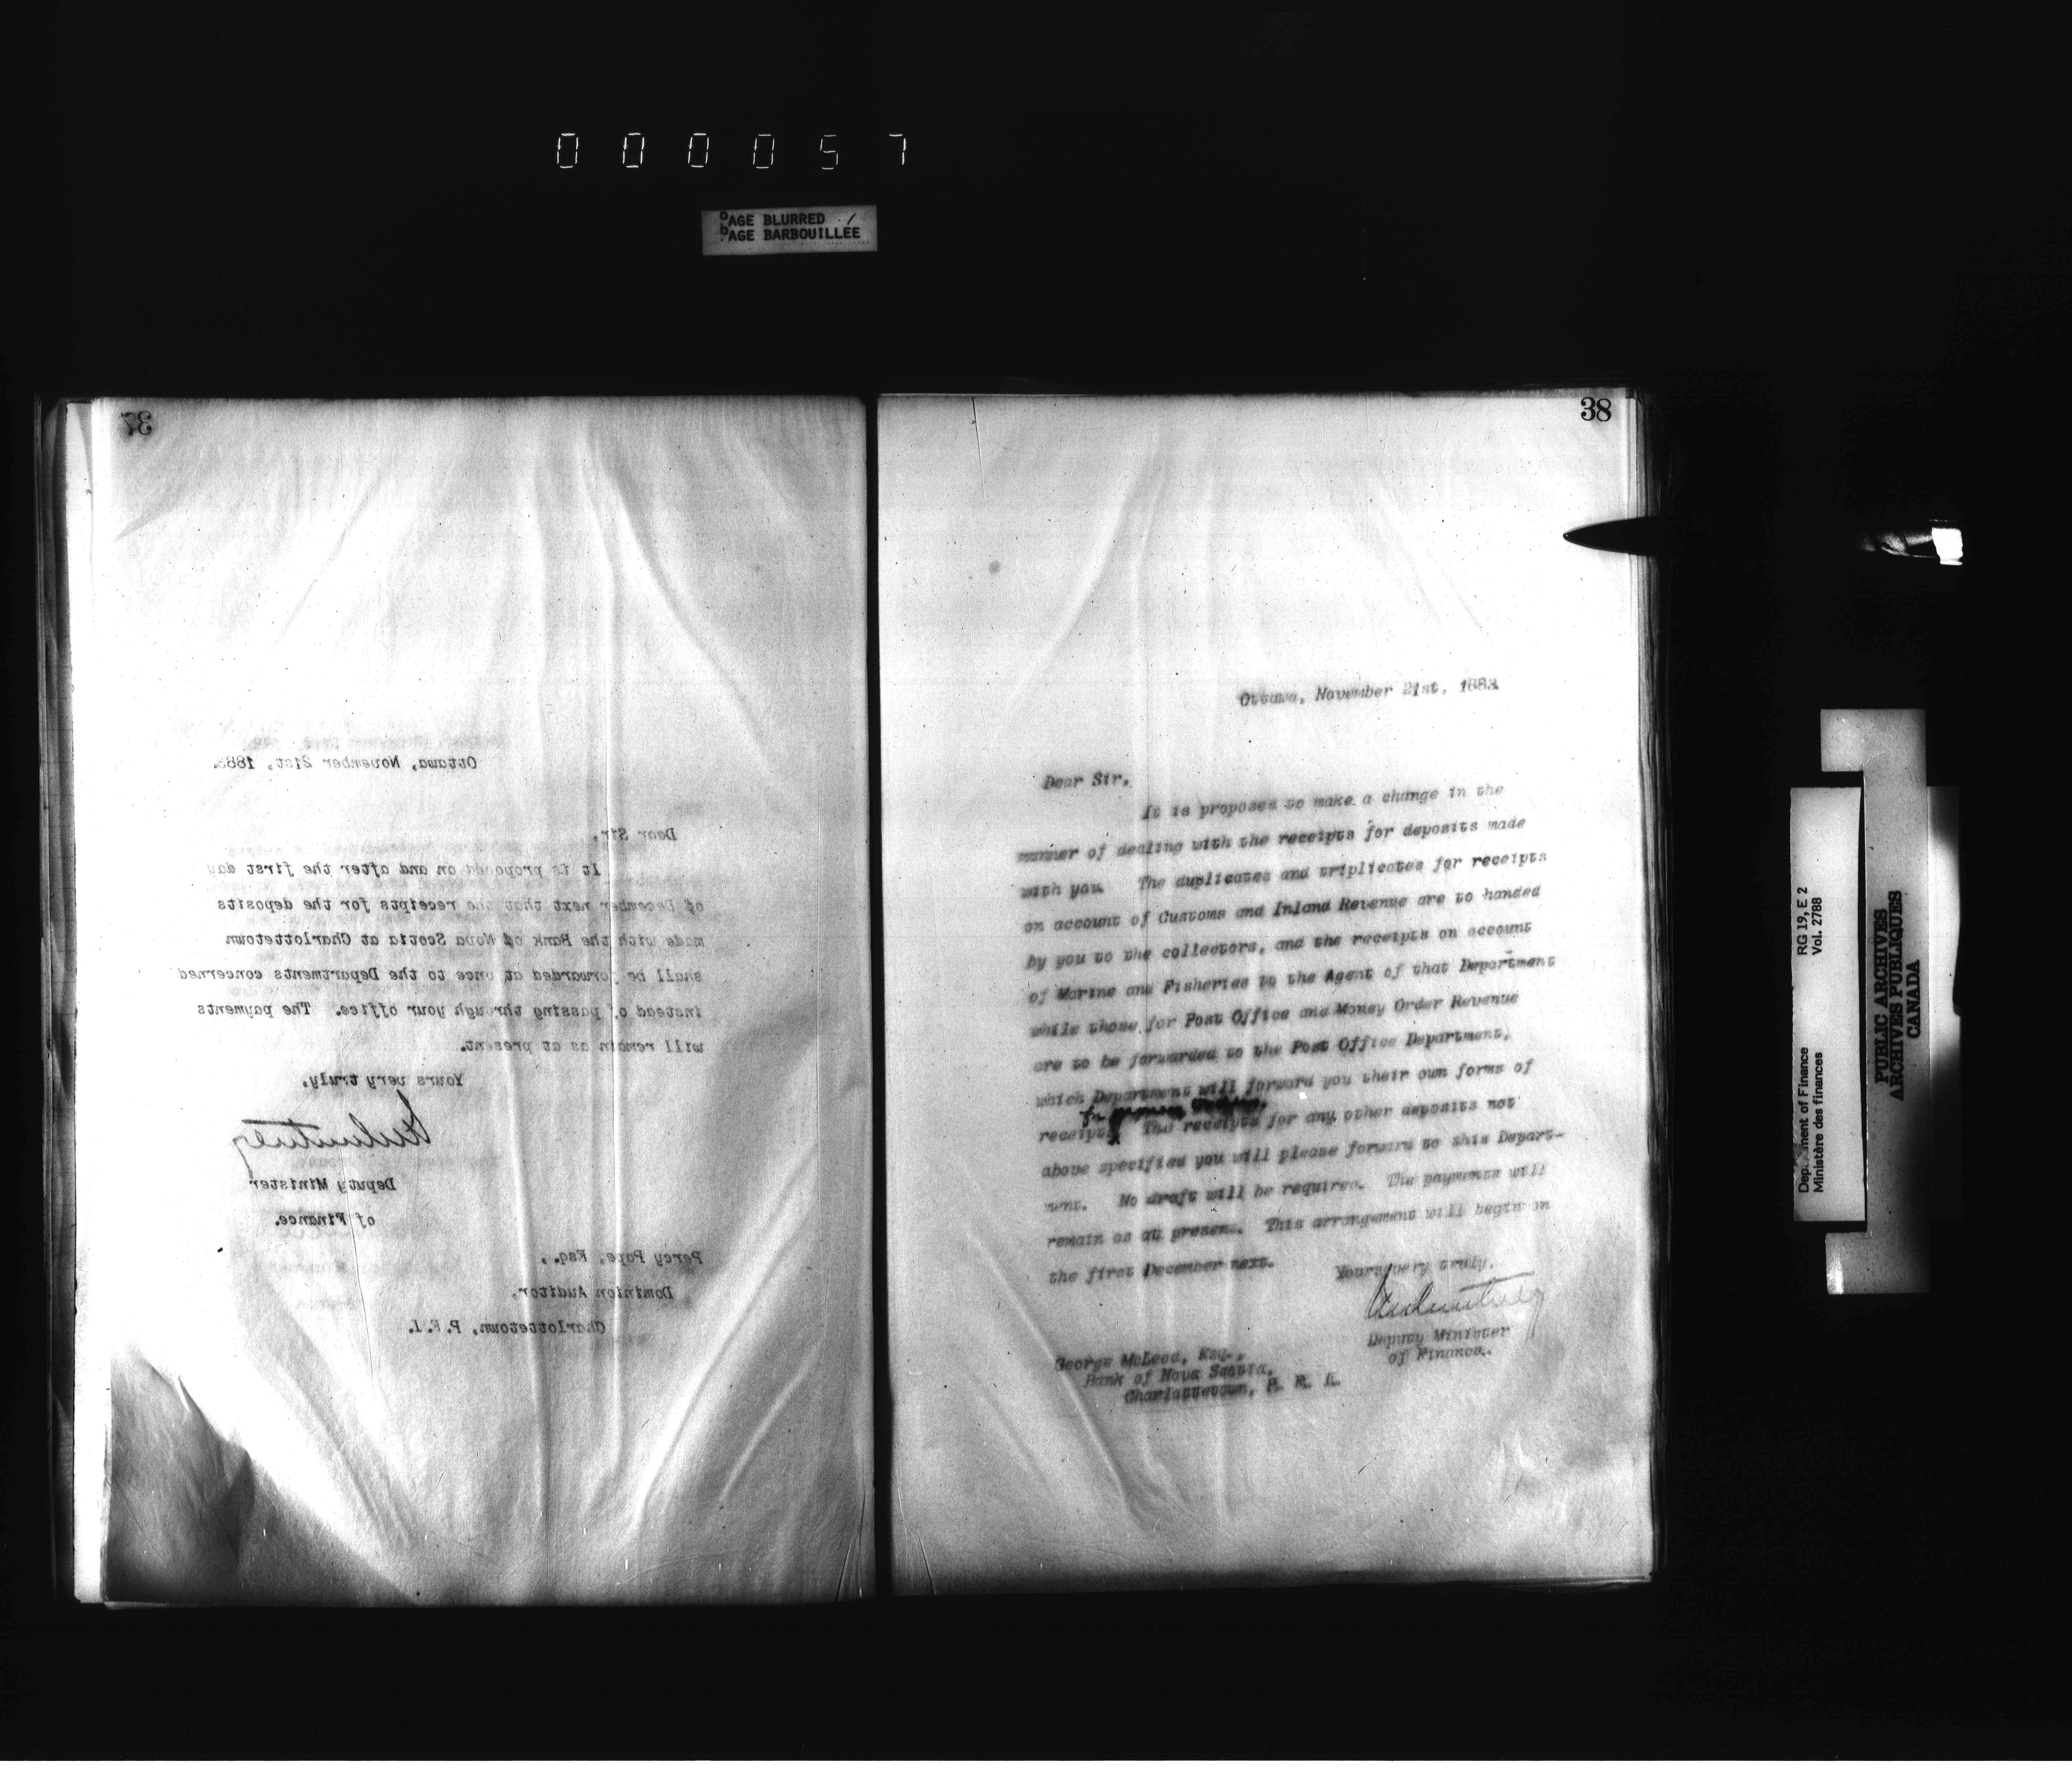 000057
PAGE BLURRED
PAGE BARBOUILLÉE
37
Ottawa, November 21st, 1883.
Dear Sir,
It is proposed on and after the first day
of December next that the receipts for the deposits
made with the Bank of Nova Scotia at Charlottetown
shall be forwarded at once to the Departments concerned
instead of passing through your office. The payments
will remain as at present.
Yours very truly,
Deputy Minister
of Finance.
Percy Pope, Esq.,
Dominion Auditor,
Charlottetown, P.E.I.
38
Ottawa, November 21st, 1883.
Dear Sir,
It is proposed to make a change in the
manner of dealing with the receipts for deposits made
with you. The duplicates and triplicates for receipts
on account of Customs and Inland Revenue are to handed
by you to the collectors, and the receipts on account
of Marine and Fisheries to the Agent of that Department
while those for Post Office and Money Order Revenue
are to be forwarded to the Post Office Department,
which Department will forward you their own forms of
for
receipt. The receipts for any other deposits not
above specified you will please forward to this Depart-
ment. No draft will be required. The payments will
remain as at present. This arrangement will begin on
the first December next.
Yours very truly,
Deputy Minister
of Finance.
George McLeod, Esq.,
Bank of Nova Scotia,
Charlottetown, P. E. I.
Department of Finance RG 19, E 2
Ministère des finances Vol. 2788
PUBLIC ARCHIVES
ARCHIVES PUBLIQUES
CANADA